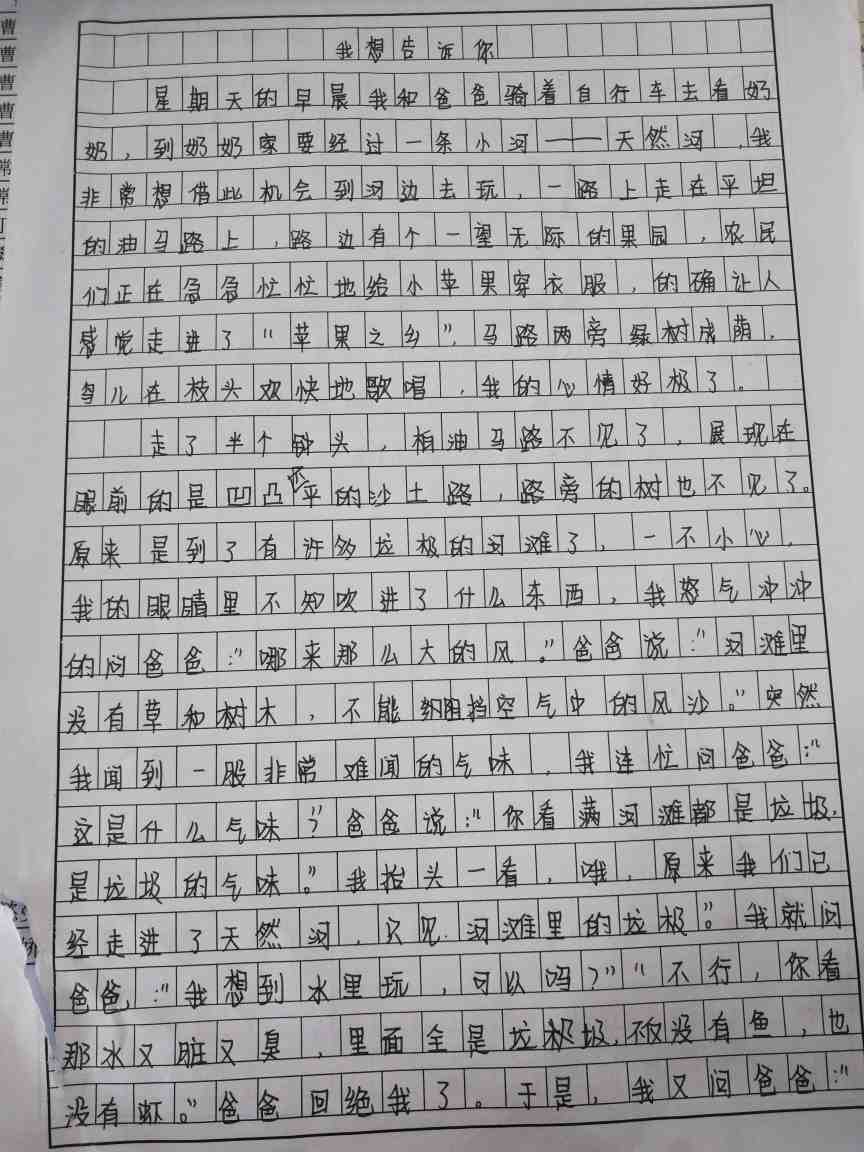 我想告诉你
星期天的早晨我和爸爸骑着自行车去看奶
奶，到奶奶家要经过一条小河——天然河，我
非常想借此机会到河边去玩，一路上走在平坦
的油马路上，路边有个一望无际的果园，农民
们正在急急忙忙地给小苹果穿衣服，的确让人
感觉走进了“苹果之乡”，马路两旁绿树成荫，
鸟儿在枝头欢快地歌唱，我的心情好极了。
走了半个钟头，柏油马路不见了，展现在
眼前的是凹凸不平的沙土路，路旁的树也不见了。
原来是到了有许多垃极的河滩了，一不小心，
我的眼睛里不知吹进了什么东西，我怒气冲冲
的问爸爸：“哪来那么大的风。”爸爸说：“河滩里
没有草和树木，不能阻挡空气中的风沙。”突然
我闻到一股非常难闻的气味，我连忙问爸爸：“
这是什么气味？”爸爸说：“你看满河滩都是垃圾，
是垃圾的气味。”我抬头一看，哦，原来我们已
经走进了天然河，只见河滩里的垃极。”我就问
爸爸，：“我想到水里玩，可以吗？”“不行，你看
那水又脏又臭，里面全是垃圾，不仅没有鱼，也
没有虾。”爸爸回绝我了。于是，我又问爸爸：“
曹
曹
曹
曹
曹
常